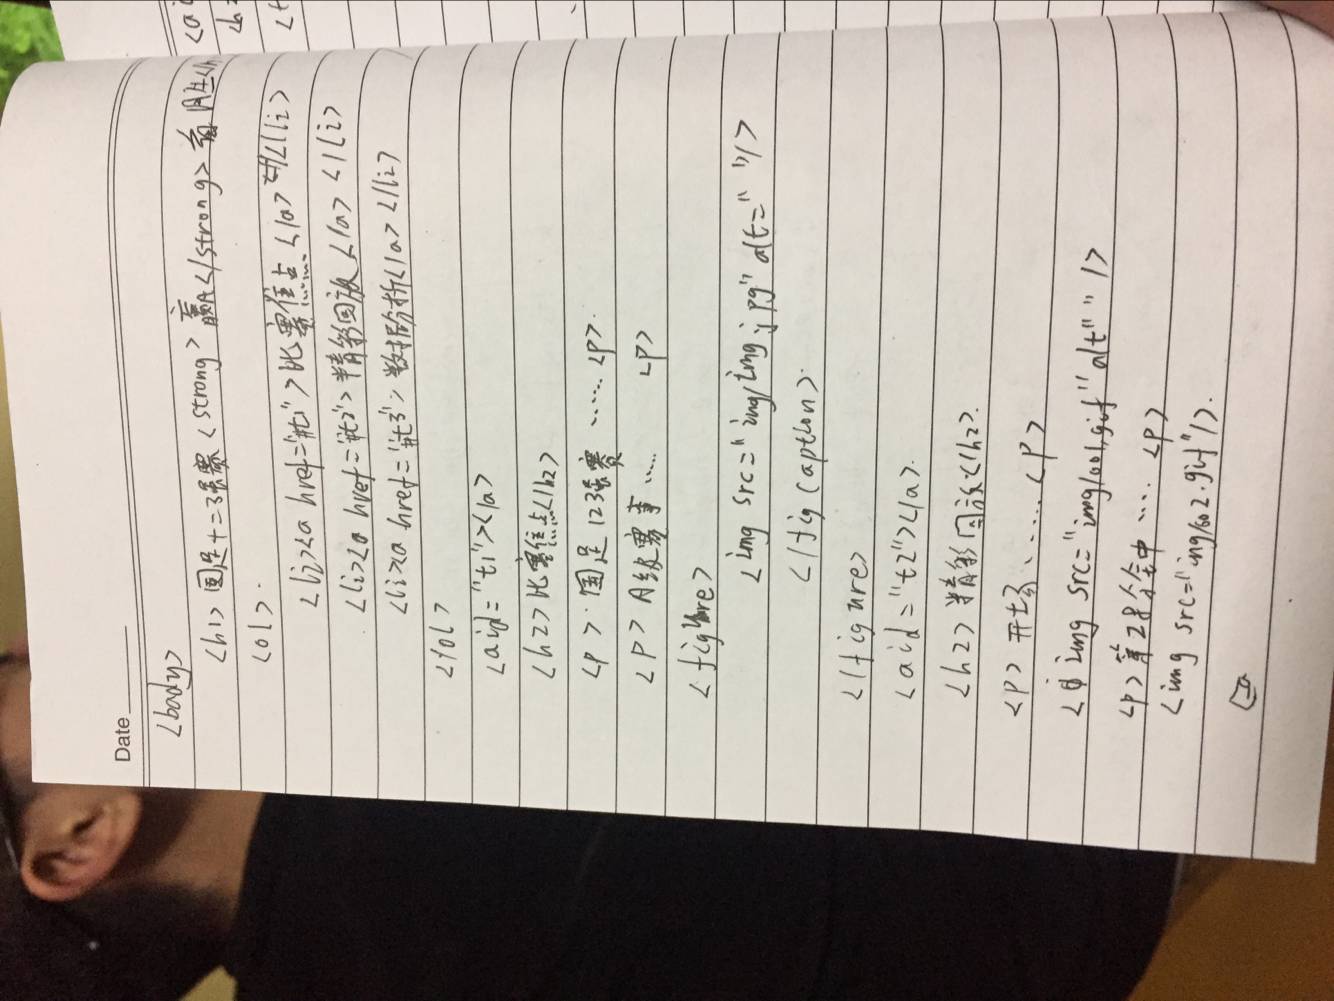 Date
<body>
<h1> 国足十二强赛 <strong> 赢</strong>
<ol>
<li><a href="#t1">比赛焦点</a></li>
<li><a href="#t2">精彩回放</a></li>
<li><a href="#t3">数据分析</a></li>
</ol>
<a id="t1"></a>
<h2>比赛焦点</h2>
<p> 国足12强赛 ...... <p>
<p> A级赛事 ..... <p>
<figure>
<img src="img/timg.jpg" alt=" "/>
</figcaption>
</figure>
<a id="t2"></a>
<h2>精彩回放</h2>
<p> 开场 ...... <p>
< img src="img/001.gif" alt" " />
<p> 第28分钟 .... <p>
<img src="img/002.gif"/>
<a
<h2
<t